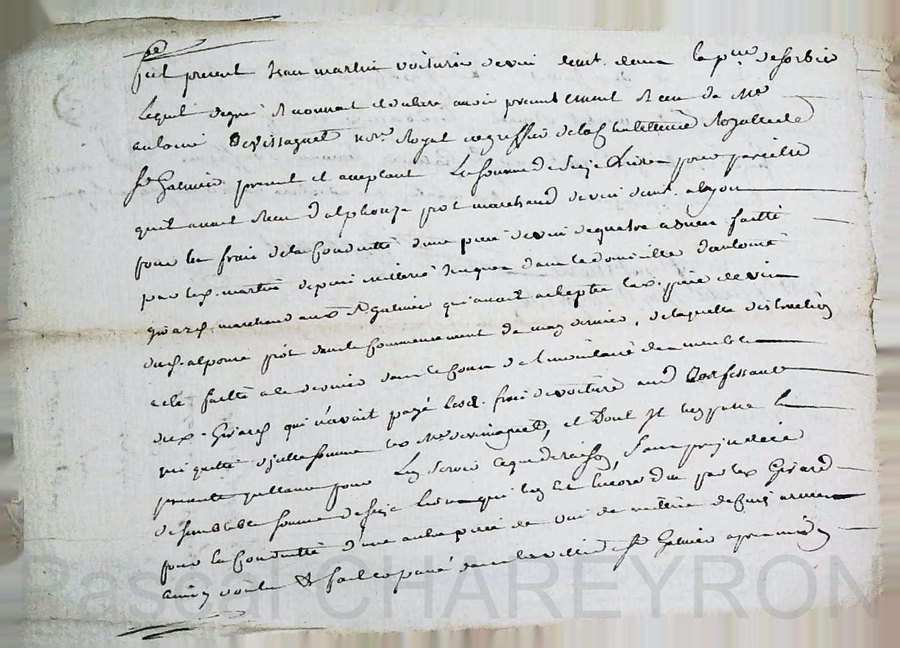 fut present Jean martin voiturier de vin demt dans la psse de Sorbier
Lequel de gré et declare avoir presentement Receu de Mre
antoine Devissaguet nore Royal et greffier de la Chatellenie Royalle de
St Galmier present et acceptant La somme de Seize Livres pour pareille
qu'il avoit d'alphonze piot marchand de vin demt a Lyon
pour les frais de la Conduitte d'une piece de vin de quatre faitte
par led. martin jusques dans le domicille d'antoine
Girard marchand aud. St Galmier qui avoit achepté lad. piece de vin
dud. piot dans le Commencement de may dernier, de laquelle
a été faitte a ce dernier dans le Cours de l'inventaire des meubles
dud. Girard qui n'avoit payé lesd. frais de voiture aud Confessant
qui quitte de lad. somme led. Me Devissaguet, et Dont
presente quittance pour Luy Servir ce que de raison, Sans prejudice
de semblable somme de seize Livres qui luy est encore due par led Girard
pour la Conduitte d'une autre piece de vin de
ainsy voulu & fait et passé dans la ville de St Galmier apres midy
Pascal CHAREYRON